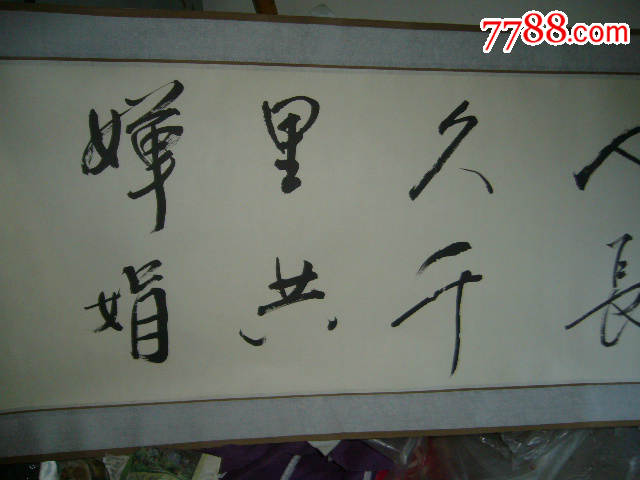 7788.com
人長
久千
里共
嬋娟